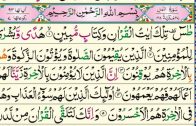 بِسْمِ اللهِ الرَّحْمٰنِ الرَّحِيْمِ
طٰسٓ تِلْكَ اٰيٰتُ الْقُرْاٰنِ وَكِتَابٍ مُّبِيْنٍ هُدًى وَّبُشْرٰى
لِلْمُؤْمِنِيْنَ الَّذِيْنَ يُقِيْمُوْنَ الصَّلٰوةَ وَيُؤْتُوْنَ الزَّكٰوةَ وَهُمْ
بِالْاٰخِرَةِ هُمْ يُوْقِنُوْنَ اِنَّ الَّذِيْنَ لَا يُؤْمِنُوْنَ بِالْاٰخِرَةِ زَيَّنَّا
لَهُمْ اَعْمَالَهُمْ فَهُمْ يَعْمَهُوْنَ اُولٰٓئِكَ الَّذِيْنَ لَهُمْ سُوْٓءُ الْعَذَابِ وَهُمْ
فِى الْاٰخِرَةِ هُمُ الْاَخْسَرُوْنَ وَاِنَّكَ لَتُلَقَّى الْقُرْاٰنَ